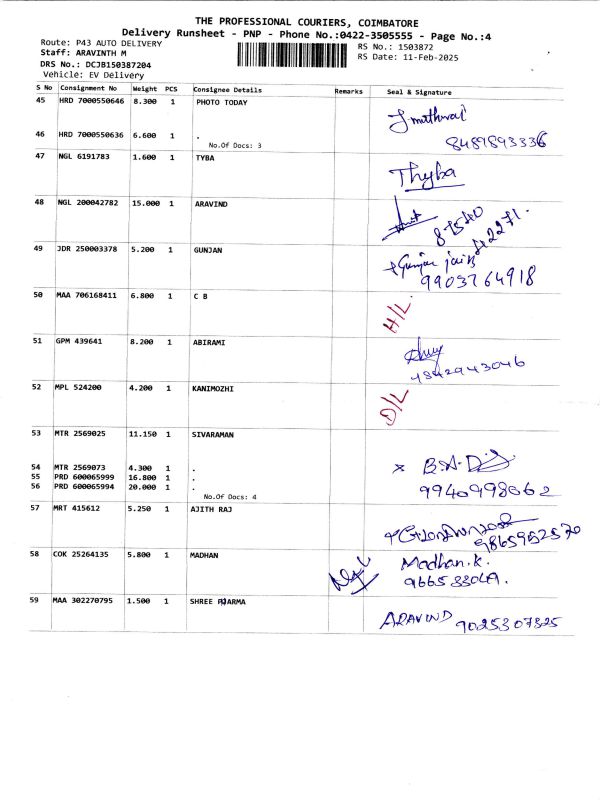 THE PROFESSIONAL COURIERS, COIMBATORE
Delivery Runsheet - PNP - Phone No.:0422-3505555 - Page No.:4
Route: P43 AUTO DELIVERY
Staff: ARAVINTH M
DRS No.: DCJB150387204
Vehicle: EV Delivery
RS No.: 1503872
RS Date: 11-Feb-2025
S No Consignment No Weight PCS Consignee Details Remarks Seal & Signature
45 HRD 7000550646 8.300 1 PHOTO TODAY
46 HRD 7000550636 6.600 1 .
No.Of Docs: 3
8489893336
47 NGL 6191783 1.600 1 TYBA
Thyba
48 NGL 200042782 15.000 1 ARAVIND
87540
42271.
49 JDR 250003378 5.200 1 GUNJAN
Gunjan jain
9903764918
50 MAA 706168411 6.800 1 C B
H/L
51 GPM 439641 8.200 1 ABIRAMI
52 MPL 524200 4.200 1 KANIMOZHI
D/L
53 MTR 2569025 11.150 1 SIVARAMAN
54 MTR 2569073 4.300 1 .
55 PRD 600065999 16.800 1 .
56 PRD 600065994 20.000 1 .
No.Of Docs: 4
57 MRT 415612 5.250 1 AJITH RAJ
58 COK 25264135 5.800 1 MADHAN
Madhan.K.
59 MAA 302270795 1.500 1 SHREE PHARMA
ARAVIND 9025307325